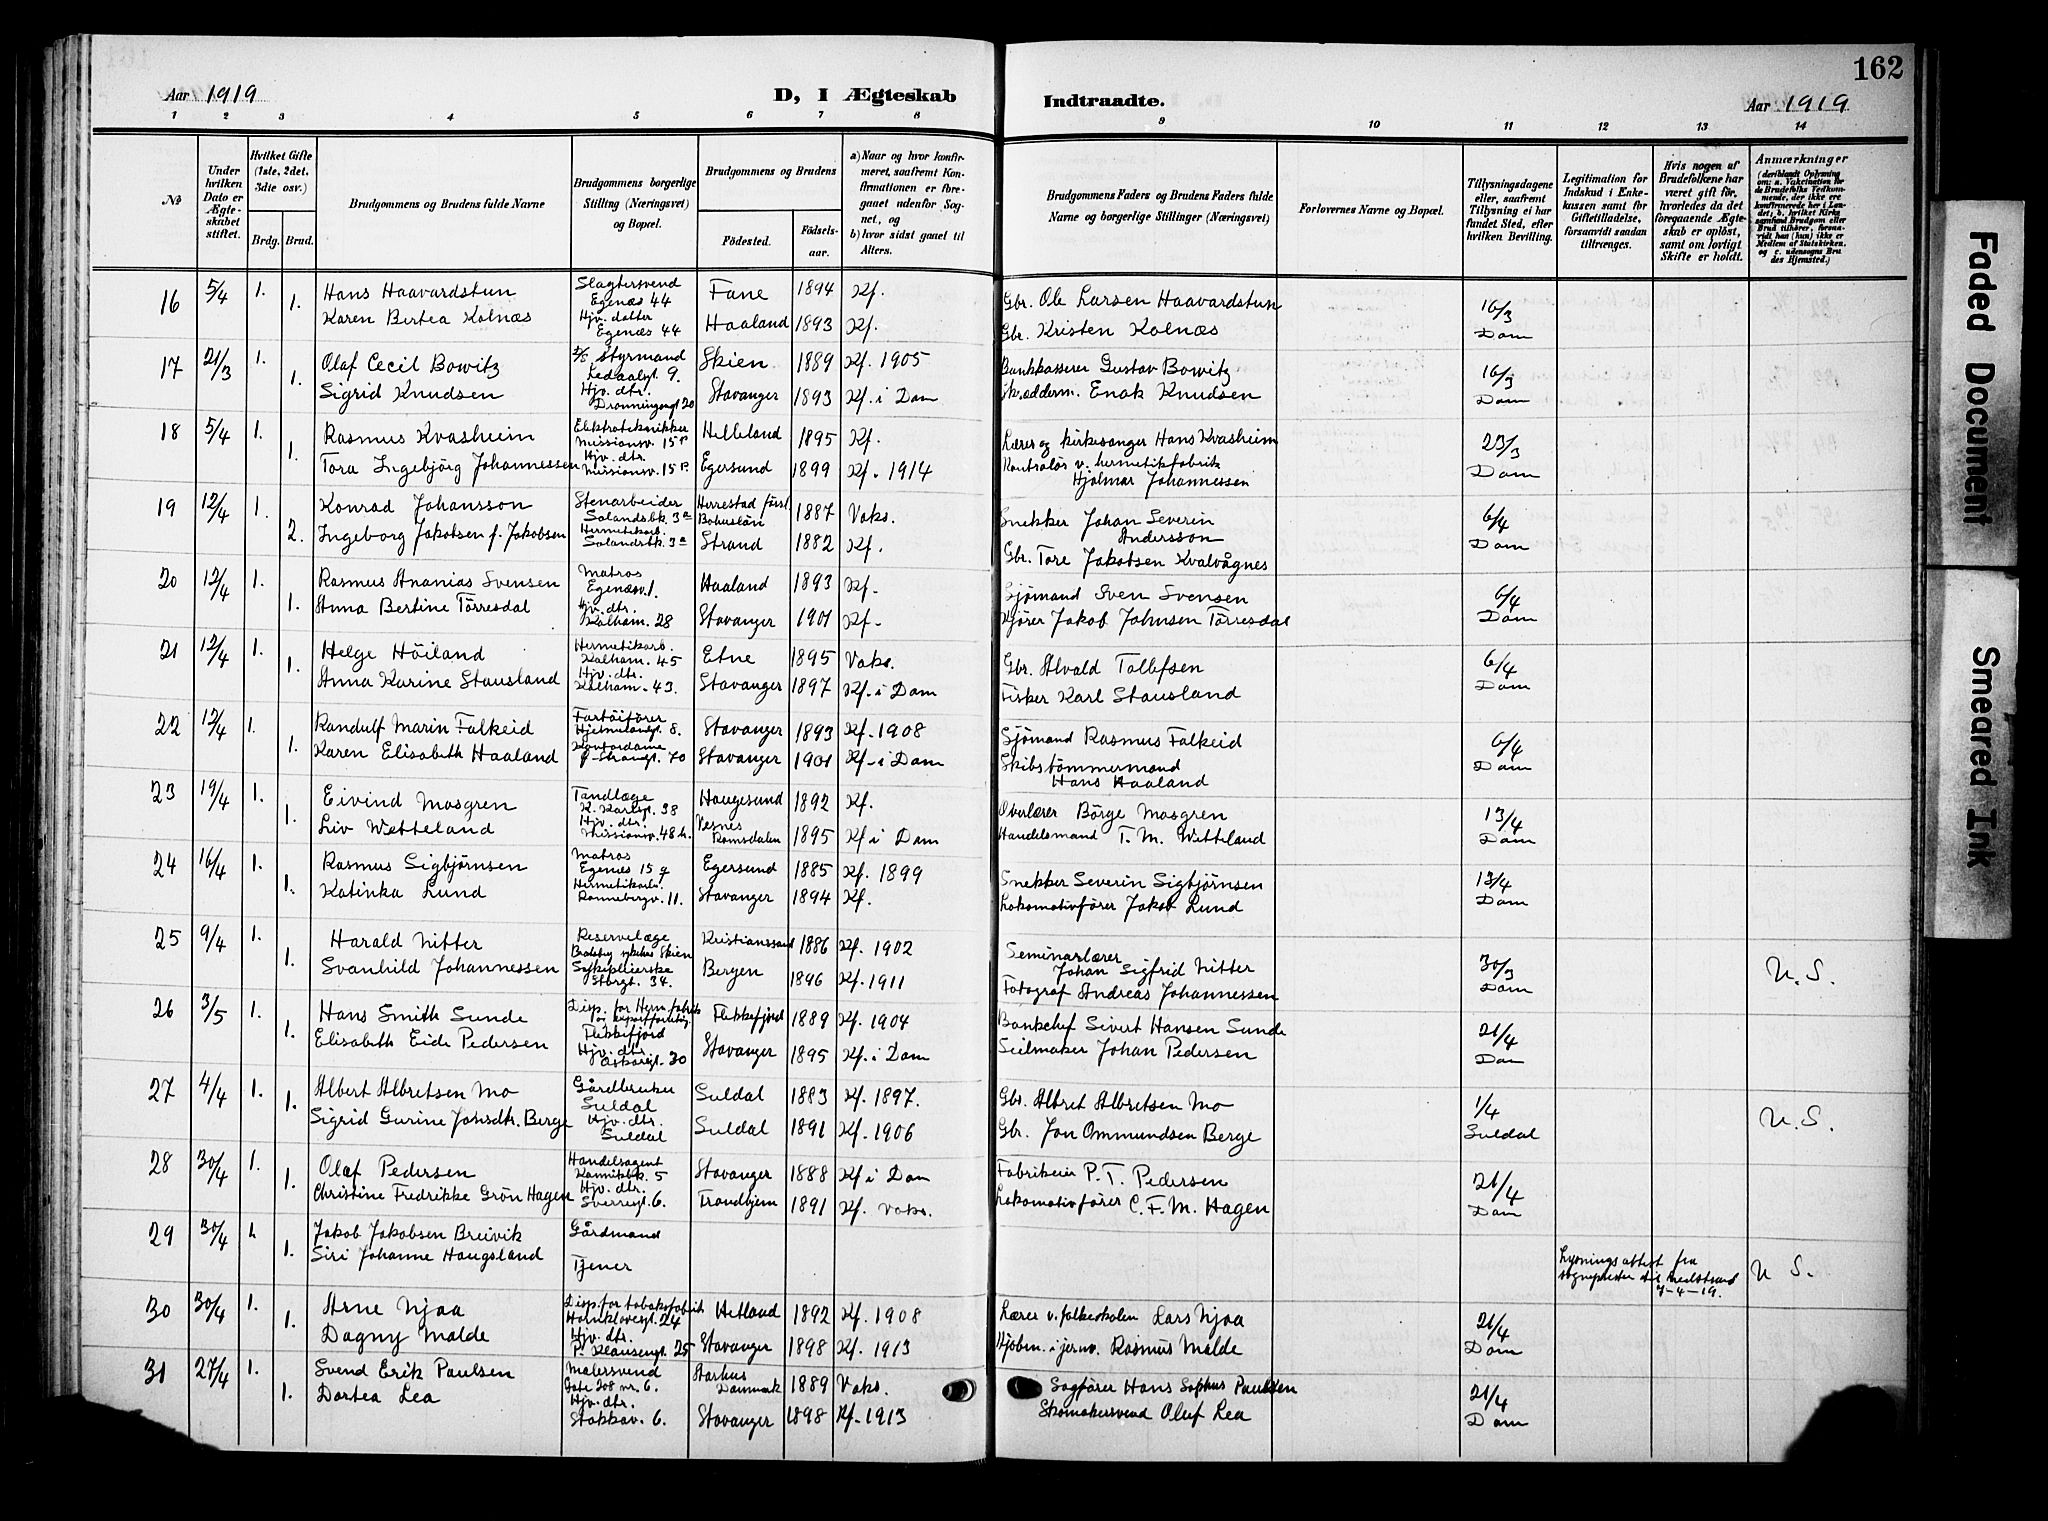 162
Aar 1919
D, I Ægteskab
Indtraadte.
Aar 1919
1 2 3 4 5 6 7 8 9 10 11 12 13 14
No
Under hvilken Dato er Ægteskabet stiftet.
Hvilket Gifte (1ste, 2det, 3die osv.)
Brdg. Brud.
Brudgommens og Brudens fulde Navne
Brudgommens borgerlige Stilling (Næringsvei) og Bopæl.
Brudgommens og Brudens
Fødested. Fødselsaar.
a) Naar og hvor konfirmeret, saafremt Konfirmationen er foregaaet udenfor Sognet, og
b) hvor sidst gaaet til Alters.
Brudgommens Faders og Brudens Faders fulde Navne og borgerlige Stillinger (Næringsvei)
Forlovernes Navne og Bopæl.
Tillysningsdagene eller, saafremt Tillysning ei har fundet Sted, efter hvilken Bevilling.
Legitimation for Indskud i Enkekassen samt for Giftetilladelse, forsaavidt saadan tiltrænges.
Hvis nogen af Brudefolkene har været gift før, hvorledes da det foregaaende Ægteskab er opløst, samt om lovligt Skifte er holdt.
Anmærkninger (deriblandt Oplysning om: a. Vakcination for de Brudefolks Vedkommende, der ikke ere konfirmerede her i Landet; b. hvilket Kirkesamfund Brudgom eller Brud tilhører, forsaavidt han (hun) ikke er Medlem af Statskirken, og c. udensogns Brudes Hjemsted.)
16 5/4 1. Hans Haavardstun Slagtersvend Egenæs 44 Fane 1894 Kf. Gbr. Ole Larsen Haavardstun 16/3
1. Karen Bertea Kolnæs Hjv. datter Egenæs 44 Haaland 1893 Kf. Gbr. Kristen Kolnæs Dom
17 21/3 1. Olaf Cecil Bowitz styrmand Ledaalgt. 9. Skien 1889 Kf. 1905 Bankkasserer Gustav Bowitz 16/3
1. Sigrid Knudsen Hjv. dtr. Dronningengt 20 Stavanger 1893 Kf. i Dom Skrædderm. Enok Knudsen Dom
18 5/4 1. Rasmus Kvasheim Elektrotekniker Missionsv. 15 Helleland 1895 Kf. Lærer og kirkesanger Hans Kvasheim 23/3
1. Tora Ingebjörg Johannessen Hjv. dtr. Missionsv. 15 Egersund 1899 Kf. 1914 Kontrolör v. hermetikfabrik Hjalmar Johannessen Dom
19 12/4 1. Konrad Johansson Stenarbeider Solandsbk. 3a Herrestad Bohuslän 1887 Voks. Snekker Johan Severin Andersson 6/4
2. Ingeborg Jakobsen f. Jakobsen Hermetikarb. Solandsbk. 3a Strand 1882 Kf. Gbr. Tore Jakobsen Kvalvågnes Dom
20 12/4 1. Rasmus Ananias Svensen Matros Egenæsv. 1. Haaland 1893 Kf. Sjömand Sven Svensen 6/4
1. Anna Bertine Törresdal Hjv. dtr. Kalham. 28 Stavanger 1901 Kf. Kjörer Jakob Johnsen Törresdal Dom
21 12/4 1. Helge Höiland Hermetikarb. Kalham. 45 Etne 1895 Voks. Gbr. Alvald Tollefsen 6/4
1. Anna Karine Stausland Hjv. dtr. Kalham. 43. Stavanger 1897 Kf. i Dom Fisker Karl Stausland Dom
22 12/4 1. Randulf Marin Falkeid Fartöiförer Hjelmelandsgt. 8. Stavanger 1893 Kf. 1908 Sjömand Rasmus Falkeid 6/4
1. Karen Elisabeth Haaland Kontordame 70 Stavanger 1901 Kf. i Dom Skibstömmermand Hans Haaland Dom
23 19/4 1. Eivind Mosgren Tandlæge K. Karlsgt. 38 Haugesund 1892 Kf. Overlærer Börge Mosgren 13/4
1. Liv Wetteland Hjv. dtr. Missionsv. 48 b. Vesnes Romsdalen 1895 Kf. i Dom Handelsmand T. M. Wetteland Dom
24 16/4 1. Rasmus Sigbjörnsen Matros Egenes 15 Egersund 1885 Kf. 1899 Snekker Severin Sigbjörnsen 13/4
1. Katinka Lund Hermetikarb. Rannebergv. 11. Stavanger 1894 Kf. Lokomotivförer Jakob Lund Dom
25 9/4 1. Harald Nitter Reservelæge sykehus Skien Kristianssand 1886 Kf. 1902 Seminarlærer Johan Sigfrid Nitter 30/3 U. S.
1. Svanhild Johannessen Sykepleierske Storgt. 34. Bergen 1896 Kf. 1911 Fotograf Andreas Johannessen Dom
26 3/5 1. Hans Smith Sunde Disp. for Herm. fabrik og exportforretng. Flekkefjord Flekkefjord 1889 Kf. 1904 Bankchef Sivert Hansen Sunde 21/4
1. Elisabeth Eide Pedersen Hjv. dtr. Oskarsgt. 30 Stavanger 1895 Kf. i Dom Seilmaker Johan Pedersen Dom
27 4/4 1. Albert Albretsen Mo Gårdbruker Suldal Suldal 1883 Kf. 1897. Gbr. Albret Albretsen Mo 1/4 U. S.
1. Sigrid Gurine Jonsdtr. Berge Hjv. dtr. Suldal Suldal 1891 Kf. 1906 Gbr. Jon Ommundsen Berge Suldal
28 30/4 1. Olaf Pedersen Handelsagent Kannikbk. 5 Stavanger 1888 Kf. i Dom Fabrikeier P. T. Pedersen 21/4
1. Christine Fredrikke Grön Hagen Hjv. dtr. Sverresgt. 6. Trondhjem 1891 Kf. Voks. Lokomotivförer C. F. M. Hagen Dom
29 30/4 1. Jakob Jakobsen Breivik Gårdmand
1. Siri Johanne Haugsland Tjener Lysningsattest fra sognepresten til Nedstrand 7-4-19. U S.
30 30/4 1. Arne Njaa Disp. for tobaksfabrik 24 Hetland 1892 Kf. 1908 Lærer v. folkeskolen Lars Njaa 21/4
1. Dagny Malde Hjv. dtr. P. Klausengt. 25 Stavanger 1898 Kf. 1913 Kjöbm. i jernv. Rasmus Malde Dom
31 27/4 1. Svend Erik Paulsen Malersvend Gate 208 nr. 6. Danmark 1889 Voks. Sagförer Hans Sophus Paulsen 21/4
1. Dortea Lea Hjv. dtr. Stokkav. 6. Stavanger 1898 Kf. 1913 Skomakersvend Oluf Lea Dom
Faded Document
Smeared Ink